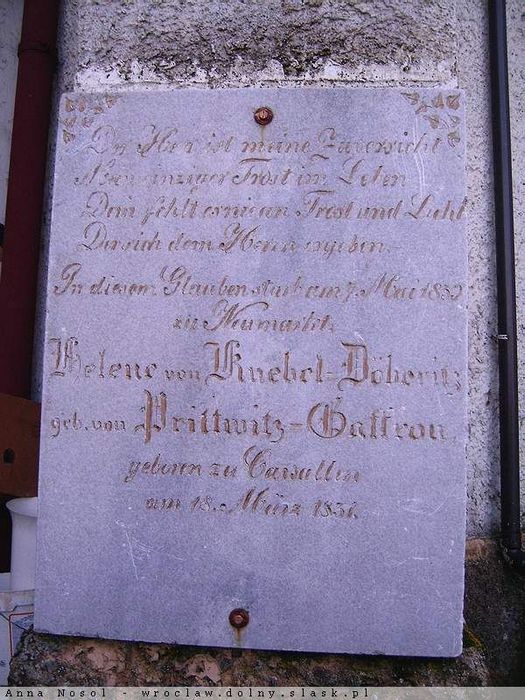 Der Herr ist meine Zuversicht
Mein einziger Trost im Leben
Dem fehlt es nie an Trost und Licht
Der sich dem Herrn ergeben.
In diesem Glauben starb am 7. Mai
zu Neumarkt.
Helene von Knebel-Döberitz
geb. von Prittwitz-Gaffron,
geboren zu Cawallen
am 18. März 1831.
Anna Nosol - wroclaw.dolny.slask.pl